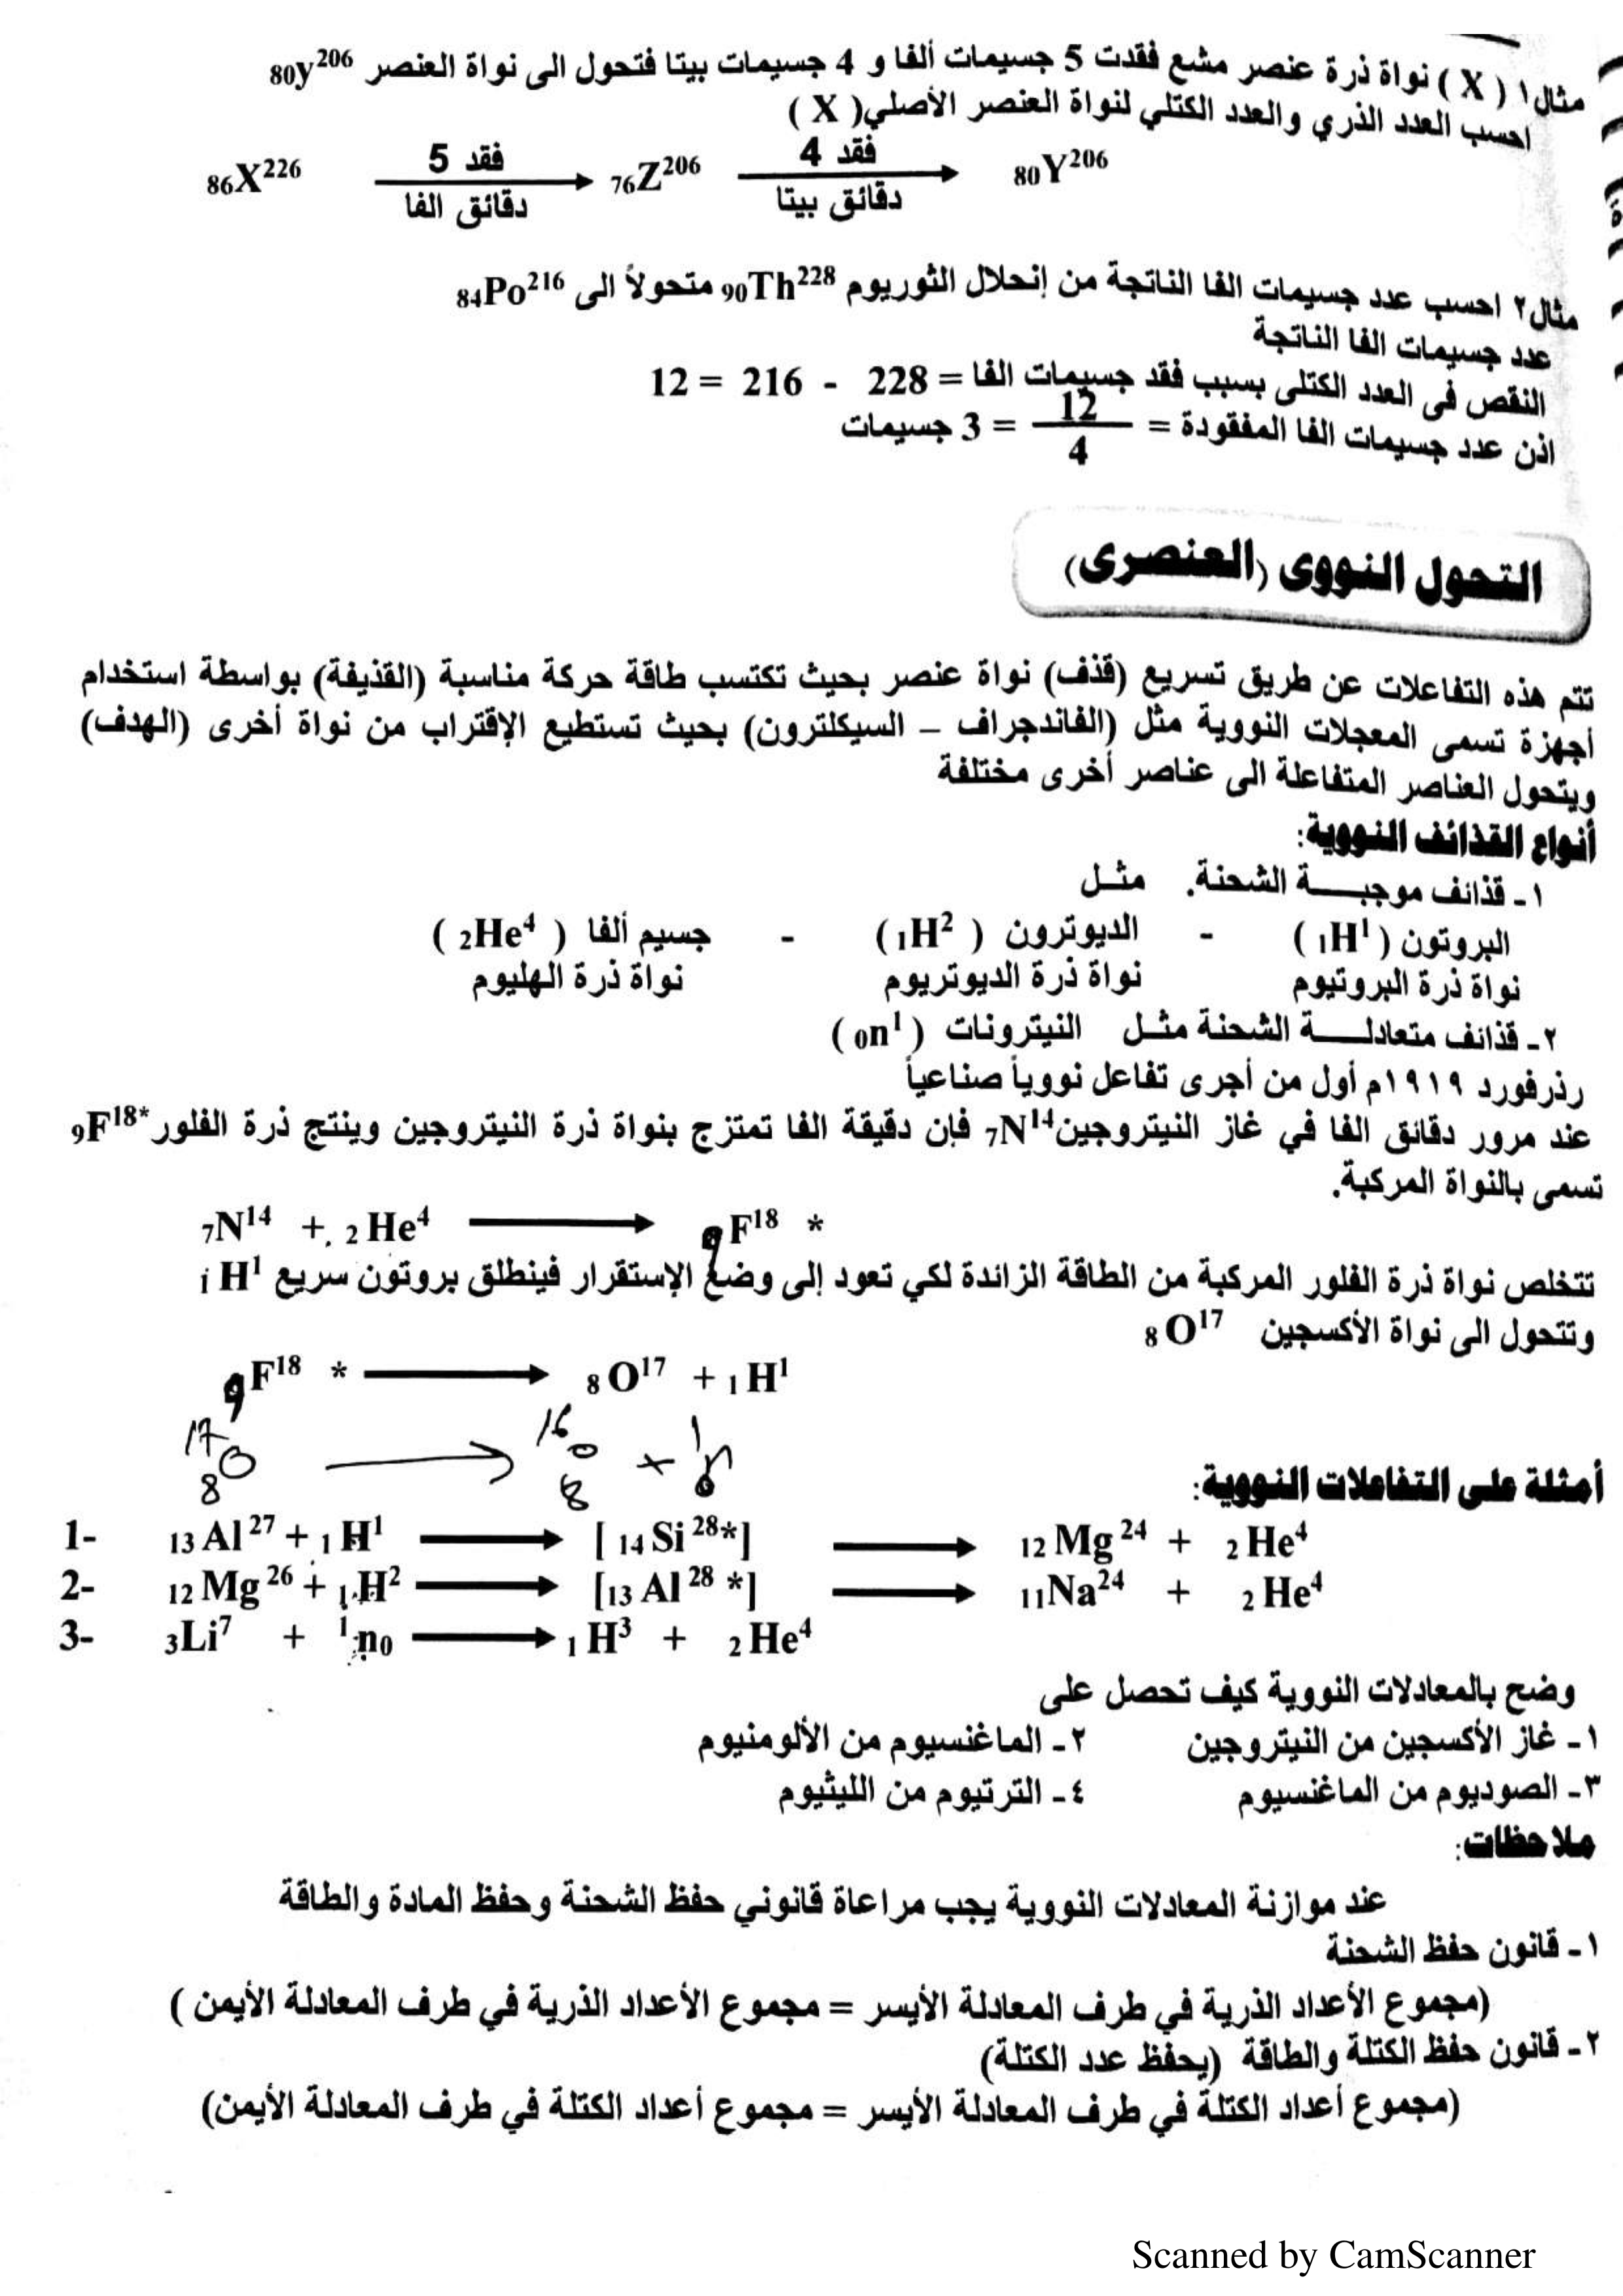 مثال١ ( X ) نواة ذرة عنصر مشع فقدت 5 جسيمات ألفا و 4 جسيمات بيتا فتحول الى نواة العنصر ₈₀y²⁰⁶
احسب العدد الذري والعدد الكتلي لنواة العنصر الأصلي( X )
₈₆X²²⁶ فقد 5 دقائق الفا → ₇₆Z²⁰⁶ فقد 4 دقائق بيتا → ₈₀Y²⁰⁶
مثال٢ احسب عدد جسيمات الفا الناتجة من إنحلال الثوريوم ₉₀Th²²⁸ متحولاً الى ₈₄Po²¹⁶
عدد جسيمات الفا الناتجة
النقص فى العدد الكتلى بسبب فقد جسيمات الفا = 228 - 216 = 12
اذن عدد جسيمات الفا المفقودة = 12/4 = 3 جسيمات
التحول النووى (العنصرى)
تتم هذه التفاعلات عن طريق تسريع (قذف) نواة عنصر بحيث تكتسب طاقة حركة مناسبة (القذيفة) بواسطة استخدام
أجهزة تسمى المعجلات النووية مثل (الفاندجراف – السيكلترون) بحيث تستطيع الإقتراب من نواة أخرى (الهدف)
ويتحول العناصر المتفاعلة الى عناصر أخرى مختلفة
أنواع القذائف النووية:
١- قذائف موجبـــة الشحنة. مثـل
البروتون ( ₁H¹ ) - الديوترون ( ₁H² ) - جسيم ألفا ( ₂He⁴ )
نواة ذرة البروتيوم نواة ذرة الديوتريوم نواة ذرة الهليوم
٢- قذائف متعادلـــة الشحنة مثـل النيترونات ( ₀n¹ )
رذرفورد ١٩١٩م أول من أجرى تفاعل نووياً صناعياً
عند مرور دقائق الفا في غاز النيتروجين ₇N¹⁴ فإن دقيقة الفا تمتزج بنواة ذرة النيتروجين وينتج ذرة الفلور ₉F¹⁸*
تسمى بالنواة المركبة.
₇N¹⁴ + ₂He⁴ → ₉F¹⁸ *
تتخلص نواة ذرة الفلور المركبة من الطاقة الزائدة لكي تعود إلى وضع الإستقرار فينطلق بروتون سريع ₁H¹
وتتحول الى نواة الأكسجين ₈O¹⁷
₉F¹⁸ * → ₈O¹⁷ + ₁H¹
¹⁷₈O → ¹⁶₈O + ¹₀n
أمثلة على التفاعلات النووية:
1- ₁₃Al²⁷ + ₁H¹ → [ ₁₄Si²⁸* ] → ₁₂Mg²⁴ + ₂He⁴
2- ₁₂Mg²⁶ + ₁H² → [ ₁₃Al²⁸ * ] → ₁₁Na²⁴ + ₂He⁴
3- ₃Li⁷ + ¹n₀ → ₁H³ + ₂He⁴
وضح بالمعادلات النووية كيف تحصل على
١- غاز الأكسجين من النيتروجين ٢- الماغنسيوم من الألومنيوم
٣- الصوديوم من الماغنسيوم ٤- الترتيوم من الليثيوم
ملاحظات:
عند موازنة المعادلات النووية يجب مراعاة قانوني حفظ الشحنة وحفظ المادة والطاقة
١- قانون حفظ الشحنة
(مجموع الأعداد الذرية في طرف المعادلة الأيسر = مجموع الأعداد الذرية في طرف المعادلة الأيمن )
٢- قانون حفظ الكتلة والطاقة (يحفظ عدد الكتلة)
(مجموع أعداد الكتلة في طرف المعادلة الأيسر = مجموع أعداد الكتلة في طرف المعادلة الأيمن)
Scanned by CamScanner